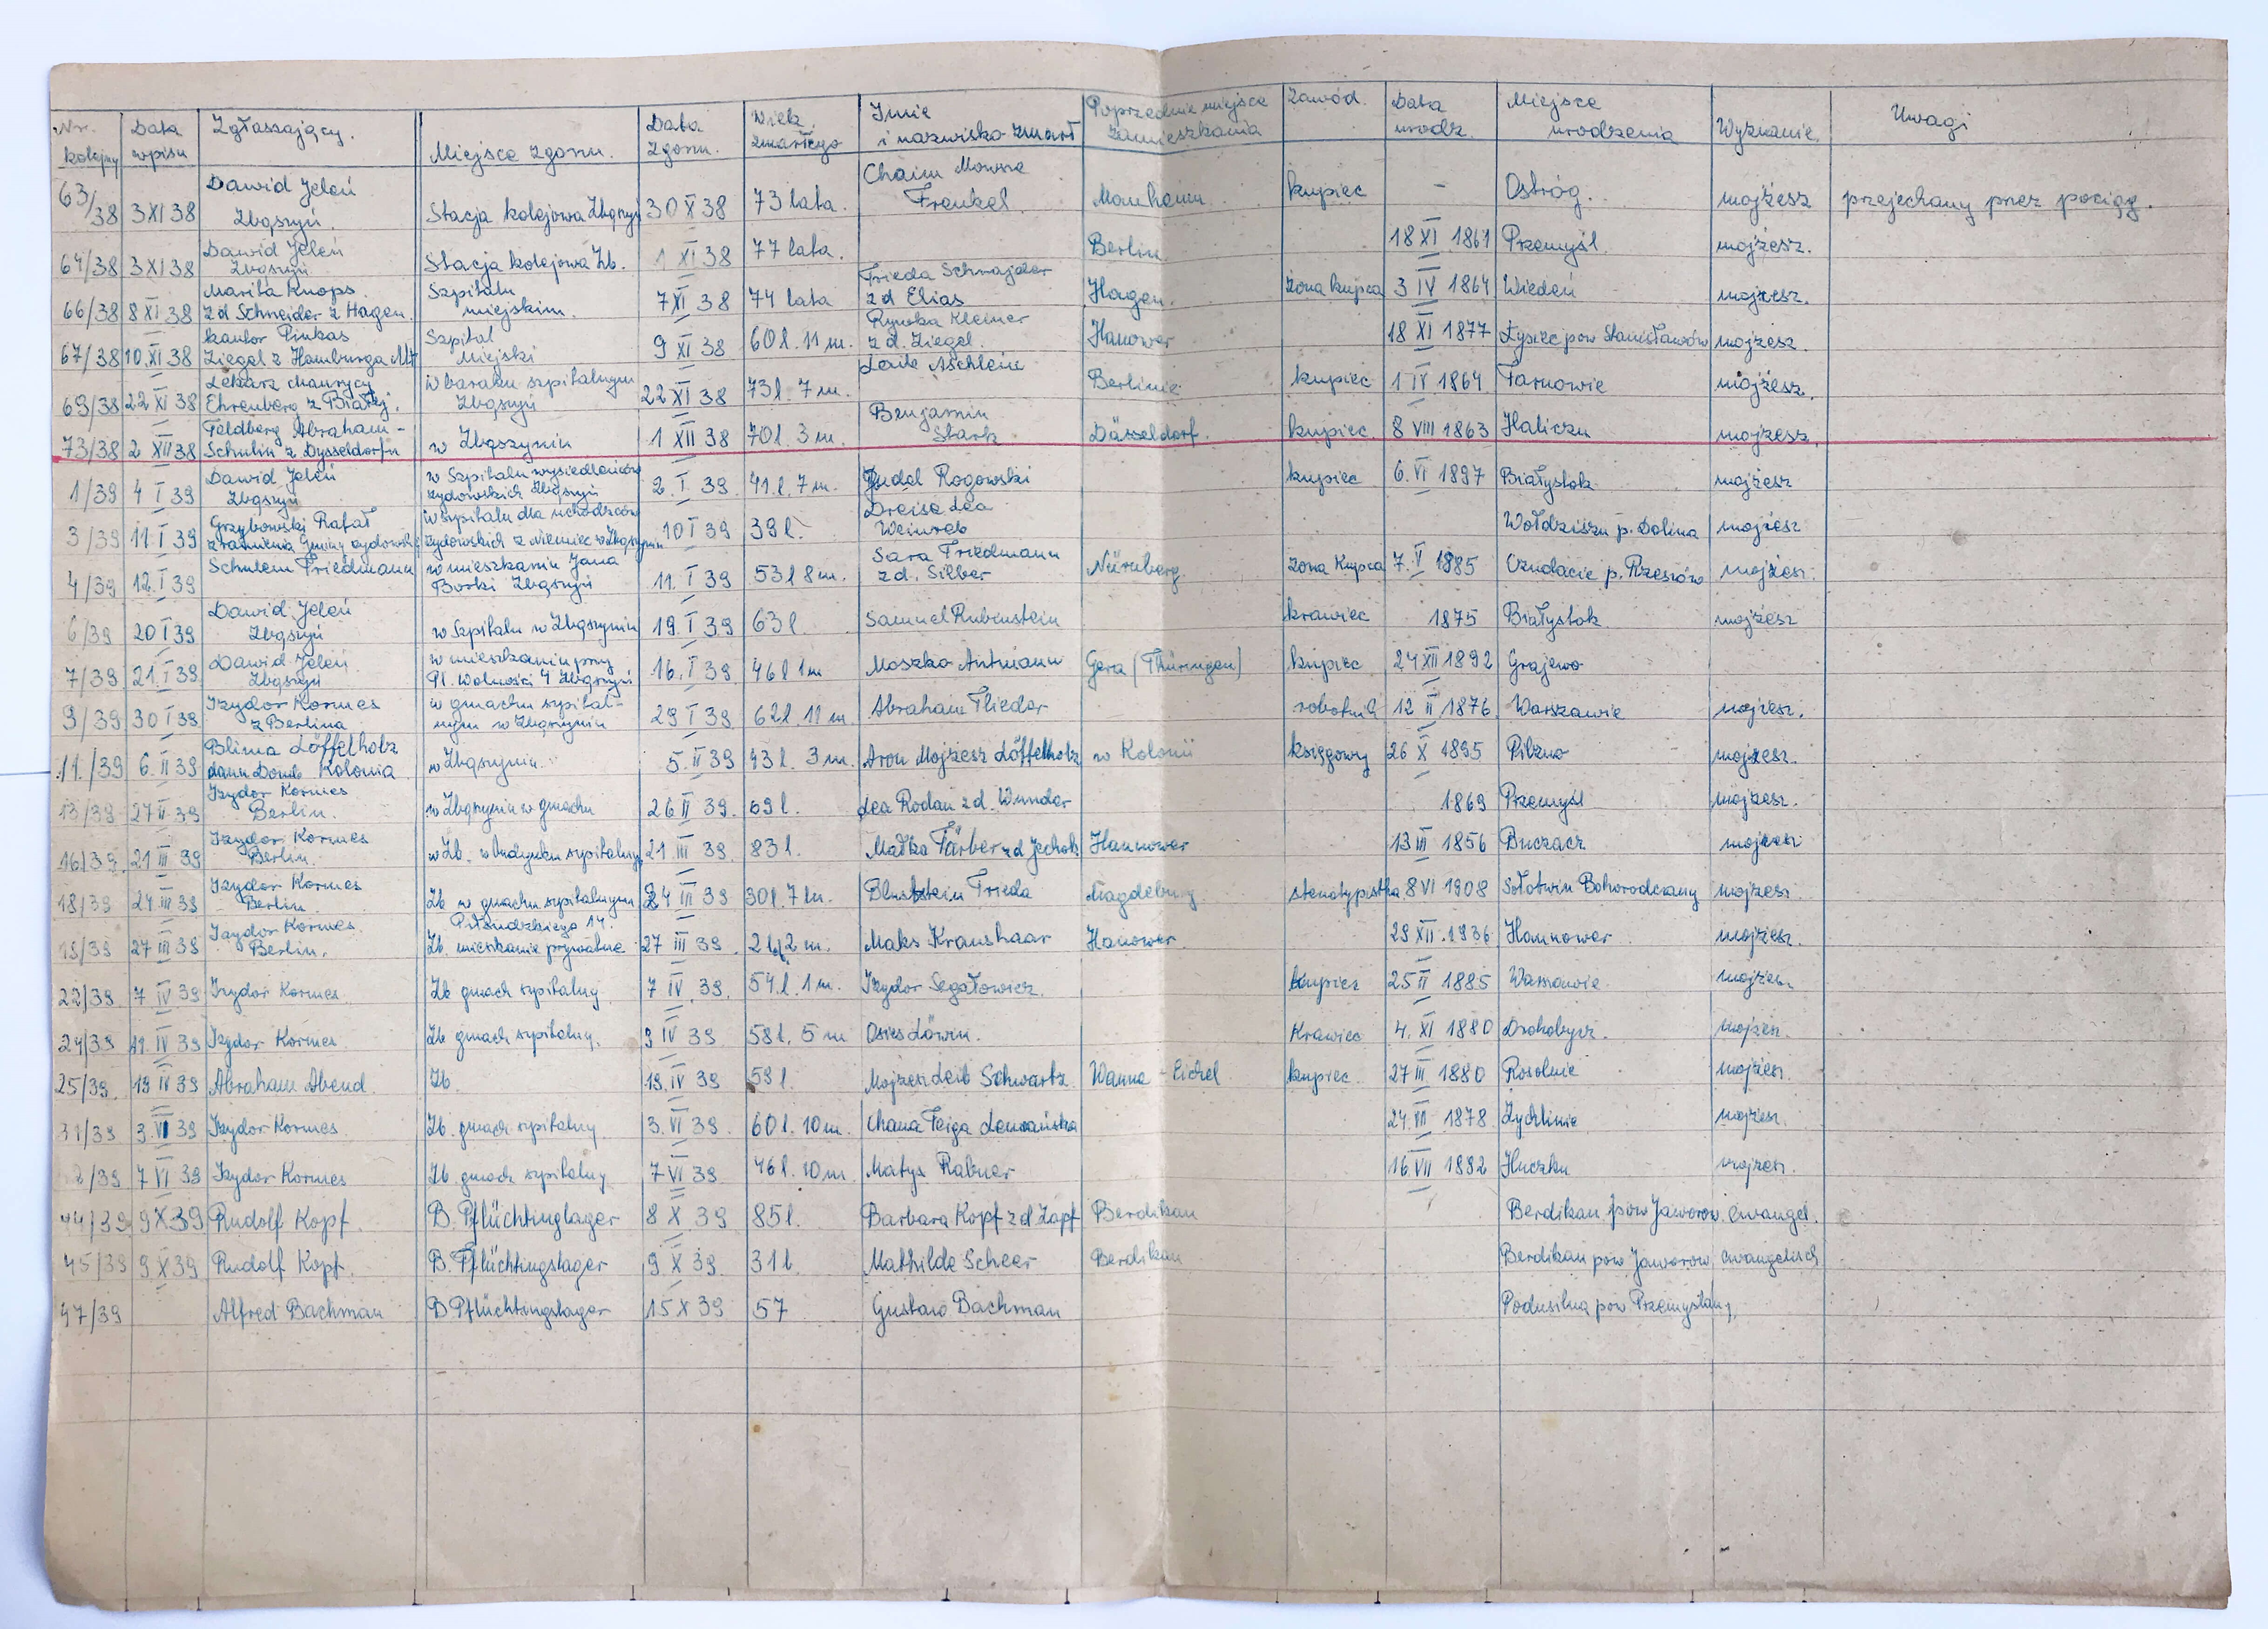 Nr. kolejny | Data wpisu | Zgłaszający. | Miejsce zgonu. | Data zgonu. | Wiek zmarłego | Imię i nazwisko zmarł | Poprzednie miejsce zamieszkania | Zawód. | Data urodz. | Miejsce urodzenia | Wyznanie. | Uwagi
63/38 | 3 XI 38 | Dawid Jeleń Zbąszyń. | Stacja kolejowa Zbąszyń | 30 X 38 | 73 lata. | Chaim Frenkel. | Manheim. | kupiec | - | Ostróg. | mojżesz | przejechany przez pociąg.
64/38 | 3 XI 38 | Dawid Jeleń Zbąszyń | Stacja kolejowa Zb. | 1 XI 38 | 77 lata. | Berlin. | 18 XI 1861 | Przemyśl. | mojżesz.
66/38 | 8 XI 38 | Marita Knops. zd Schneider z Hagen. | Szpitalu miejskim. | 7 XI 38 | 74 lata | Frieda Schnajder zd Elias | Hagen. | żona kupca | 3 IV 1864 | Wiedeń | mojżesz.
67/38 | 10. XI 38 | kantor Pinkas Ziegel z Hamburga Alt | Szpital Miejski | 9 XI 38 | 60 l. 11 m. | Rywka Kleiner z d. Ziegel. | Hanower | 18 XI 1877 | Łysiec pow Stanisławów | mojżesz.
69/38 | 22 XI 38 | Lekarz Maurycy Ehrenberg z Białej. | w baraku szpitalnym Zbąszyń | 22 XI 38 | 73 l. 7 m. | Aschheim | Berlinie | kupiec | 1 IV 1864 | Tarnowie | mojżesz.
73/38 | 2 XII 38 | Feldberg Abraham- Schulin z Dysseldorfu | w Zbąszyniu | 1 XII 38 | 70 l. 3 m. | Benjamin Stark | Düsseldorf. | kupiec. | 8 VIII 1863 | Haliczu | mojżesz.
1/39 | 4 I 39 | Dawid Jeleń Zbąszyń | w Szpitalu wysiedleńców żydowskich Zbąszyń | 2. I. 39. | 41. l. 7 m. | Judel Rogowski | kupiec | 6. VI 1897 | Białystok | mojżesz
3/39 | 11. I 39 | Grzybowski Rafał z ramienia Gminy żydowsk | w szpitalu dla uchodźców żydowskich z Niemiec w Zbąszyniu | 10 I 39 | 39 l. | Dreise Lea Weinreb | Wołdziszu p. Dolina | mojżesz
4/39 | 12. I 39 | Schulem Friedmann | w mieszkaniu Jana Boski Zbąszyń | 11. I 39 | 53 l 8 m. | Sara Friedmann z d. Silber | Nürnberg. | żona kupca | 7. V 1885 | p. Rzeszów | mojżesz.
6/39 | 20 I 39 | Dawid Jeleń Zbąszyń | w Szpitalu w Zbąszyniu | 19. I 39 | 63 l. | Samuel Rubinstein | krawiec | 1875 | Białystok | mojżesz
7/39 | 21. I 39 | Dawid Jeleń. Zbąszyń | w mieszkaniu przy Pl. Wolności 4 Zbąszyń | 16. I 39 | 46 l 1 m | Moszko Antmann | Gera (Thüringen) | kupiec | 24 XII 1892 | Grajewo
9/39 | 30 I 39 | Izydor Kormes z Berlina | w gmachu szpital- nym w Zbąszyniu | 29 I 39 | 62 l. 11 m. | Abraham Flieder | robotnik | 12 II 1876. | Warszawie | mojżesz.
11./39 | 6. II 39 | Blima Löffelholz Kolonia. | w Zbąszyniu. | 5. II 39 | 43 l. 3 m. | Aron Mojżesz Löffelholz | w Kolonii | księgowy | 26 X 1895 | Pilzno | mojżesz.
13/39 | 27 II 39 | Izydor Kormes Berlin. | w Zbąszyniu w gmachu | 26 II 39. | 69 l. | Lea Rodan z d. Wunder | 1869 | Przemyśl | mojżesz.
16/39. | 21 III 39 | Izydor Kormes Berlin. | w Zb. w budynku szpitalnym | 21. III 39. | 83 l. | Małka Färber zd | Hannower | 13 III 1856 | Buczacz | mojżesz
18/39 | 24 III 39 | Izydor Kormes Berlin | Zb w gmachu szpitalnym | 24 III 39 | 30 l. 7 m. | Blustein Frieda | Magdeburg | stenotypistka | 8 VI 1908 | Sołotwin Bohorodczany | mojżesz.
19/39 | 27 III 39 | Izydor Kormes. Berlin. | Piłsudzkiego 14. Zb. mieszkanie prywatne | 27 III 39. | 2 l. 2 m. | Maks Kraushaar | Hanower | 29 XII. 1936 | Hannower. | mojżesz.
22/39 | 7 IV 39 | Izydor Kormes. | Zb gmach szpitalny. | 7 IV. 39. | 54 l. 1 m. | Izydor Segałowicz. | kupiec | 25 II 1885 | Warszawie. | mojżesz.
24/39 | 11. IV 39 | Izydor Kormes | Zb gmach szpitalny. | 9 IV 39 | 58 l. 5 m | Löwin. | Krawiec | 4. XI 1880 | Drohobycz. | mojżesz.
25/39. | 19 IV 39 | Abraham Abend | Zb. | 19. IV 39 | 59 l. | Mojżesz Leib Schwartz. | Wanne - Eickel | kupiec. | 27 III 1880 | Rosolnie | mojżesz.
31/39 | 3. VI 39 | Izydor Kormes. | Zb. gmach szpitalny. | 3. VI 39. | 60 l. 10 m. | Chana Feiga | 24. VII 1878 | Żychlinie | mojżesz.
/39 | 7 VI 39 | Izydor Kormes | Zb. gmach szpitalny | 7 VI 39 | 46 l. 10 m. | Matys Rabner | 16. VII 1892 | Huczku | mojżesz.
44/39. | 9 X 39 | Rudolf Kopf. | B. Pflüchtinglager | 8 X 39 | 85 l. | Barbara Kopf z d Zapf | Berdikau | Berdikau pow Jaworow. | ewangel.
45/39 | 9 X 39 | Rudolf Kopf. | B. Pflüchtingslager | 9. X 39. | 31 l. | Mathilde Scheer | Berdikau | Berdikau pow Jaworow | ewangelisch
47/39 | Alfred Bachman | B Pflüchtingslager | 15 X 39 | 57 | Gustaw Bachman | Podusilna pow Przemyślany